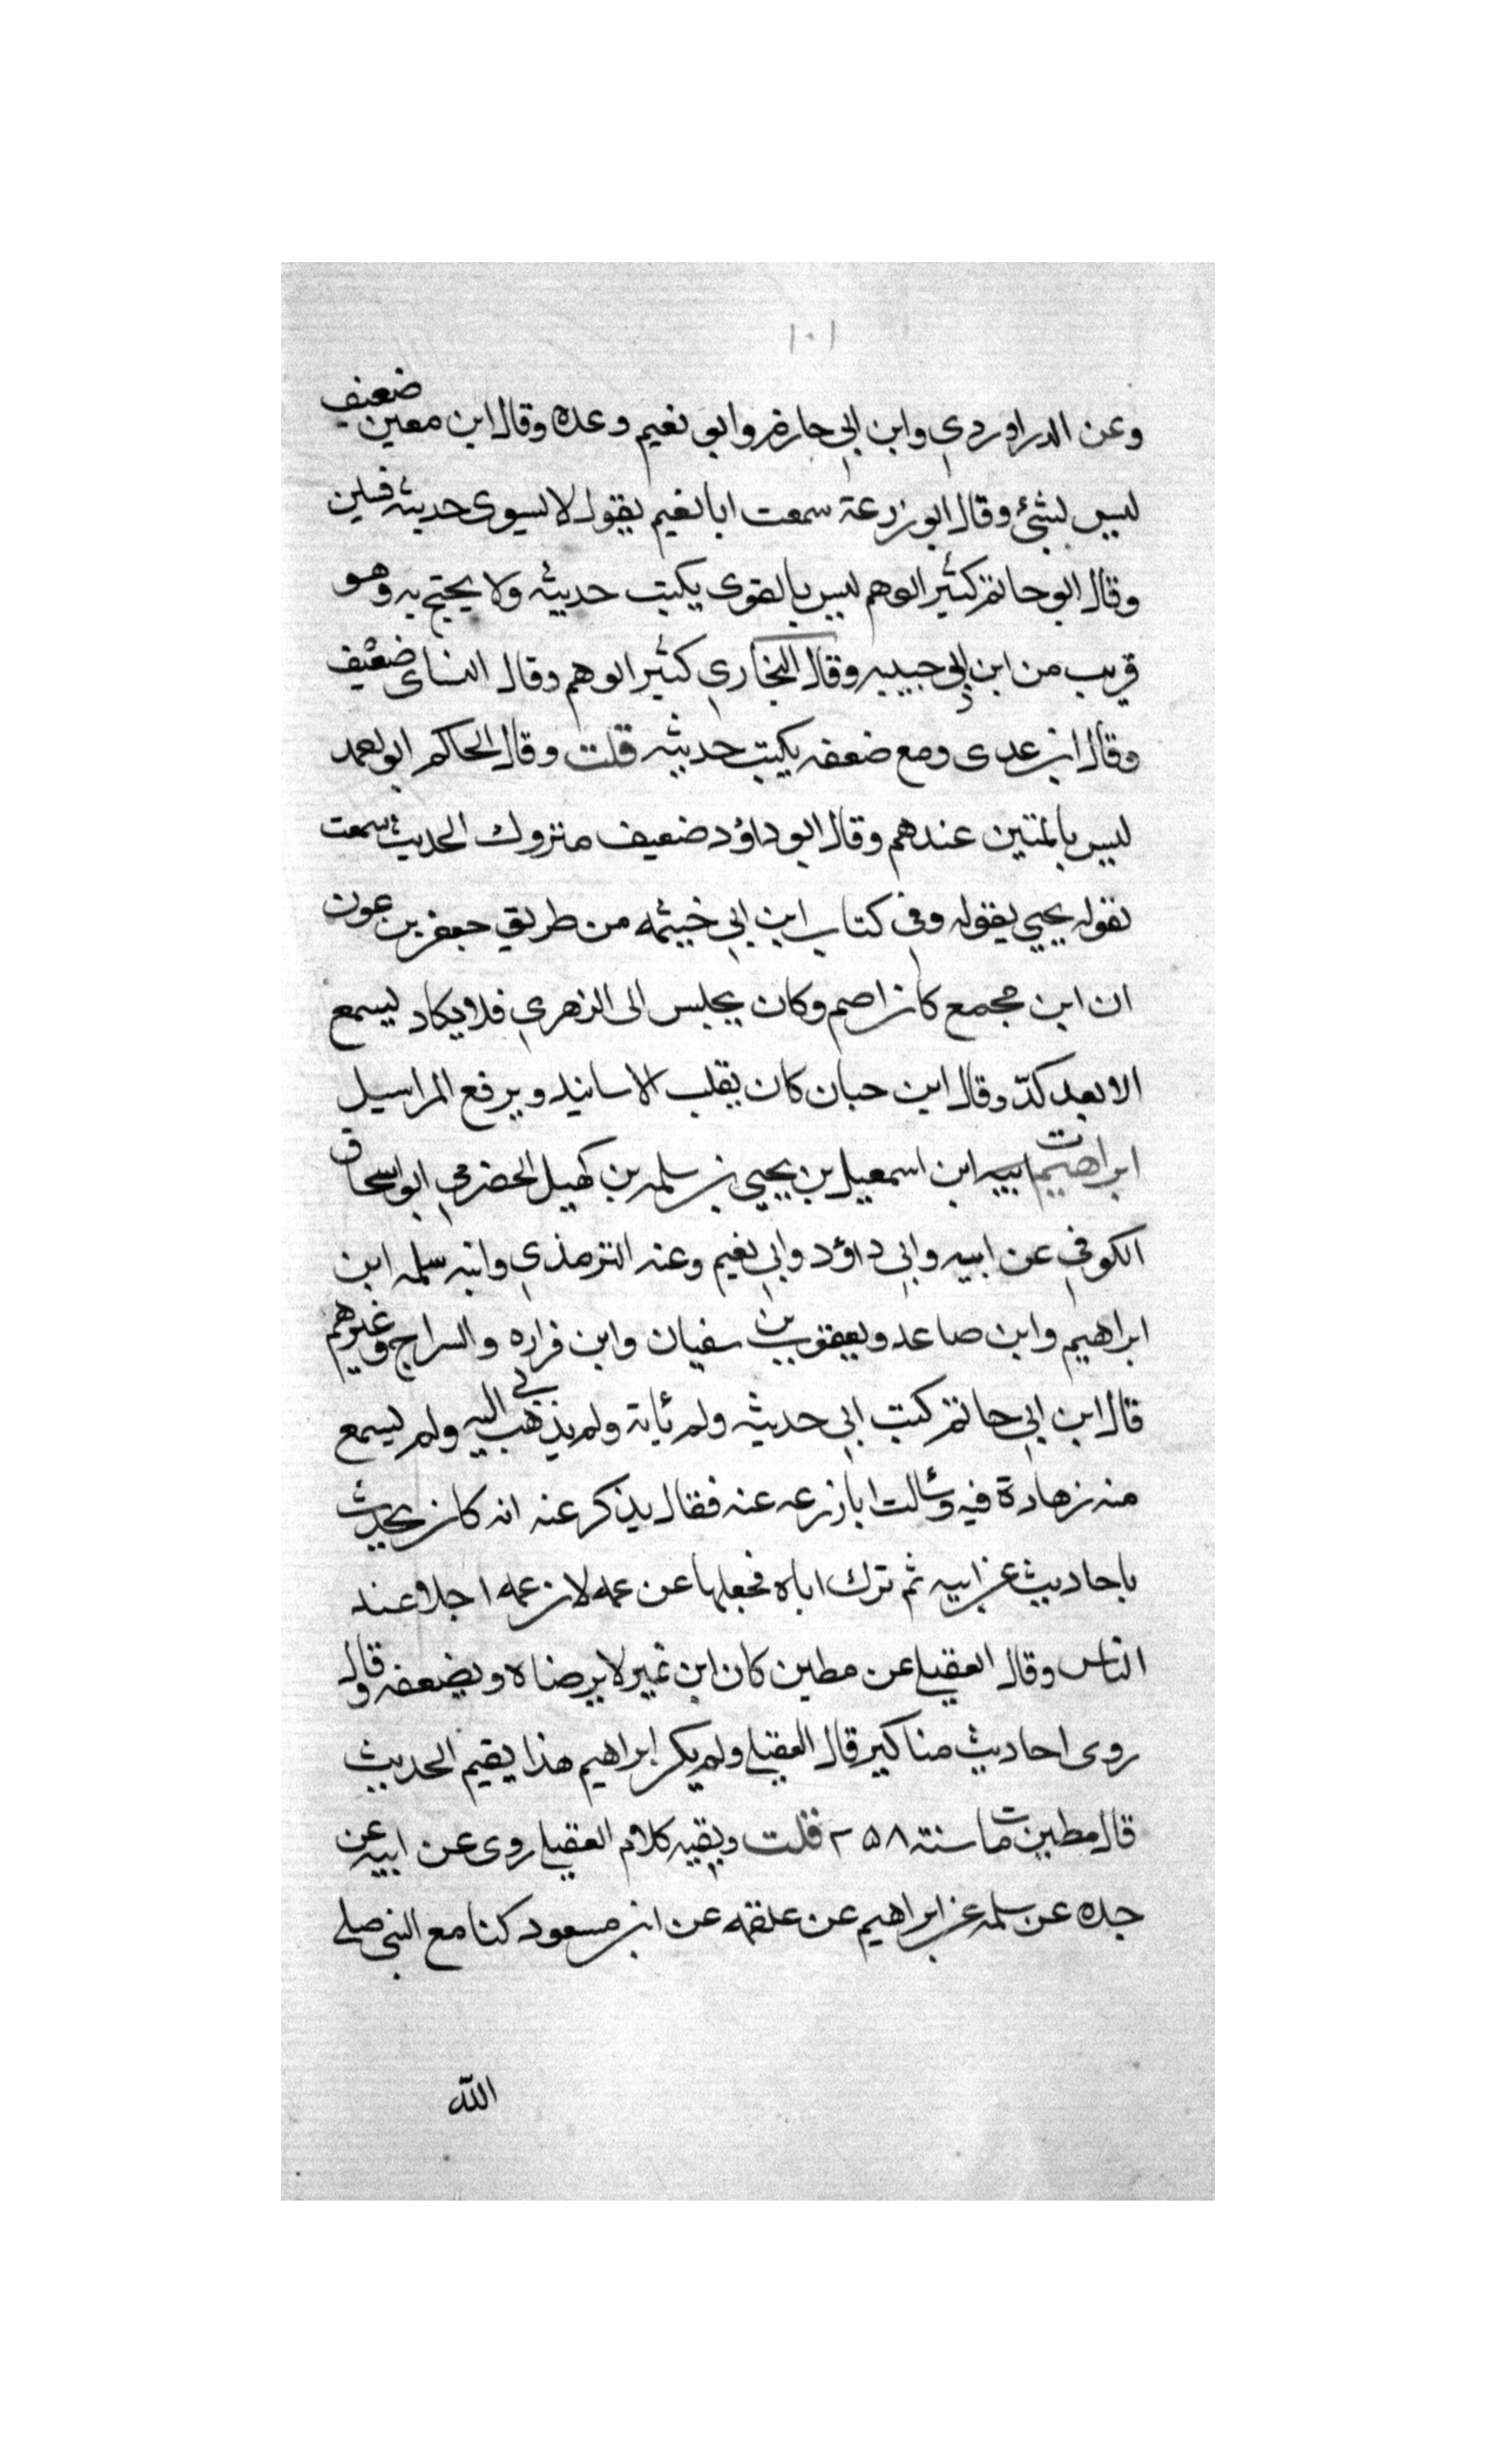 ١٠١
وعن الدراوردي وابن ابي حازم وابو نعيم وعدة وقال ابن معين ضعيف
ليس بشئ وقال ابو زرعة سمعت ابا نعيم يقول لا يسوى حديثه فلين
وقال ابو حاتم كثير الوهم ليس بالقوى يكتب حديثه ولا يحتج به وهو
قريب من ابن ابي حبيبه وقال البخاري كثير الوهم وقال النساى ضعيف
وقال ابن عدى ومع ضعفه يكتب حديثه قلت وقال الحاكم ابو احمد
ليس بالمتين عندهم وقال ابو داؤد ضعيف متروك الحديث سمعت
يحيي يقوله وفي كتاب ابن ابي خيثمه من طريق جعفر بن عون
ان ابن مجمع كان اصم وكان يجلس الى الزهري فلا يكاد يسمع
الا بعد كدّ وقال ابن حبان كان يقلب الاسانيد ويرفع المراسيل
ت ابراهيم ابن اسمعيل بن يحيي بن سلمه بن كهيل الحضرمي ابو اسحاق
الكوفي عن ابيه وابي داؤد وابي نعيم وعنه الترمذي وابنه سلمه ابن
ابراهيم وابن صاعد ويعقوب بن سفيان وابن فراره والسراج وغيرهم
قال ابن ابي حاتم كتب ابي حديثه ولم يأته ولم يذهب بي اليه ولم يسمع
منه زهادة فيه وسالت ابا زرعه عنه فقال يذكر عنه انه كان يحدث
باحاديث عن ابيه ثم ترك اباه فجعلها عن عمه لان عمه اجلا عند
الناس وقال العقيلي عن مطين كان ابن نمير لا يرضاه ويضعفه وقال
روى احاديث مناكير قال العقيلي ولم يكن ابراهيم هذا يقيم الحديث
قال مطين مات سنة ٢٥٨ قلت وبقيه كلام العقيلي روى عن ابيه عن
جده عن سلمه عن ابراهيم عن علقمه عن ابن مسعود كنا مع النبي صلى
الله